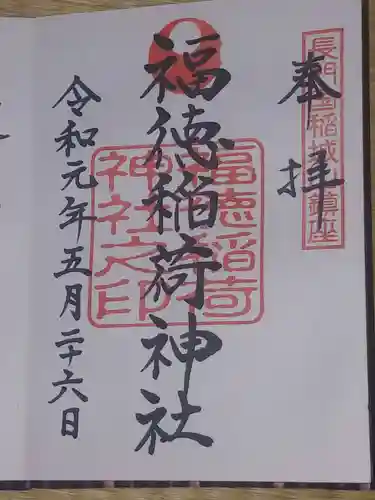 奉拝
長門国稲城山鎮座
福徳稲荷神社
福徳稲荷
神社之印
令和元年五月二十六日